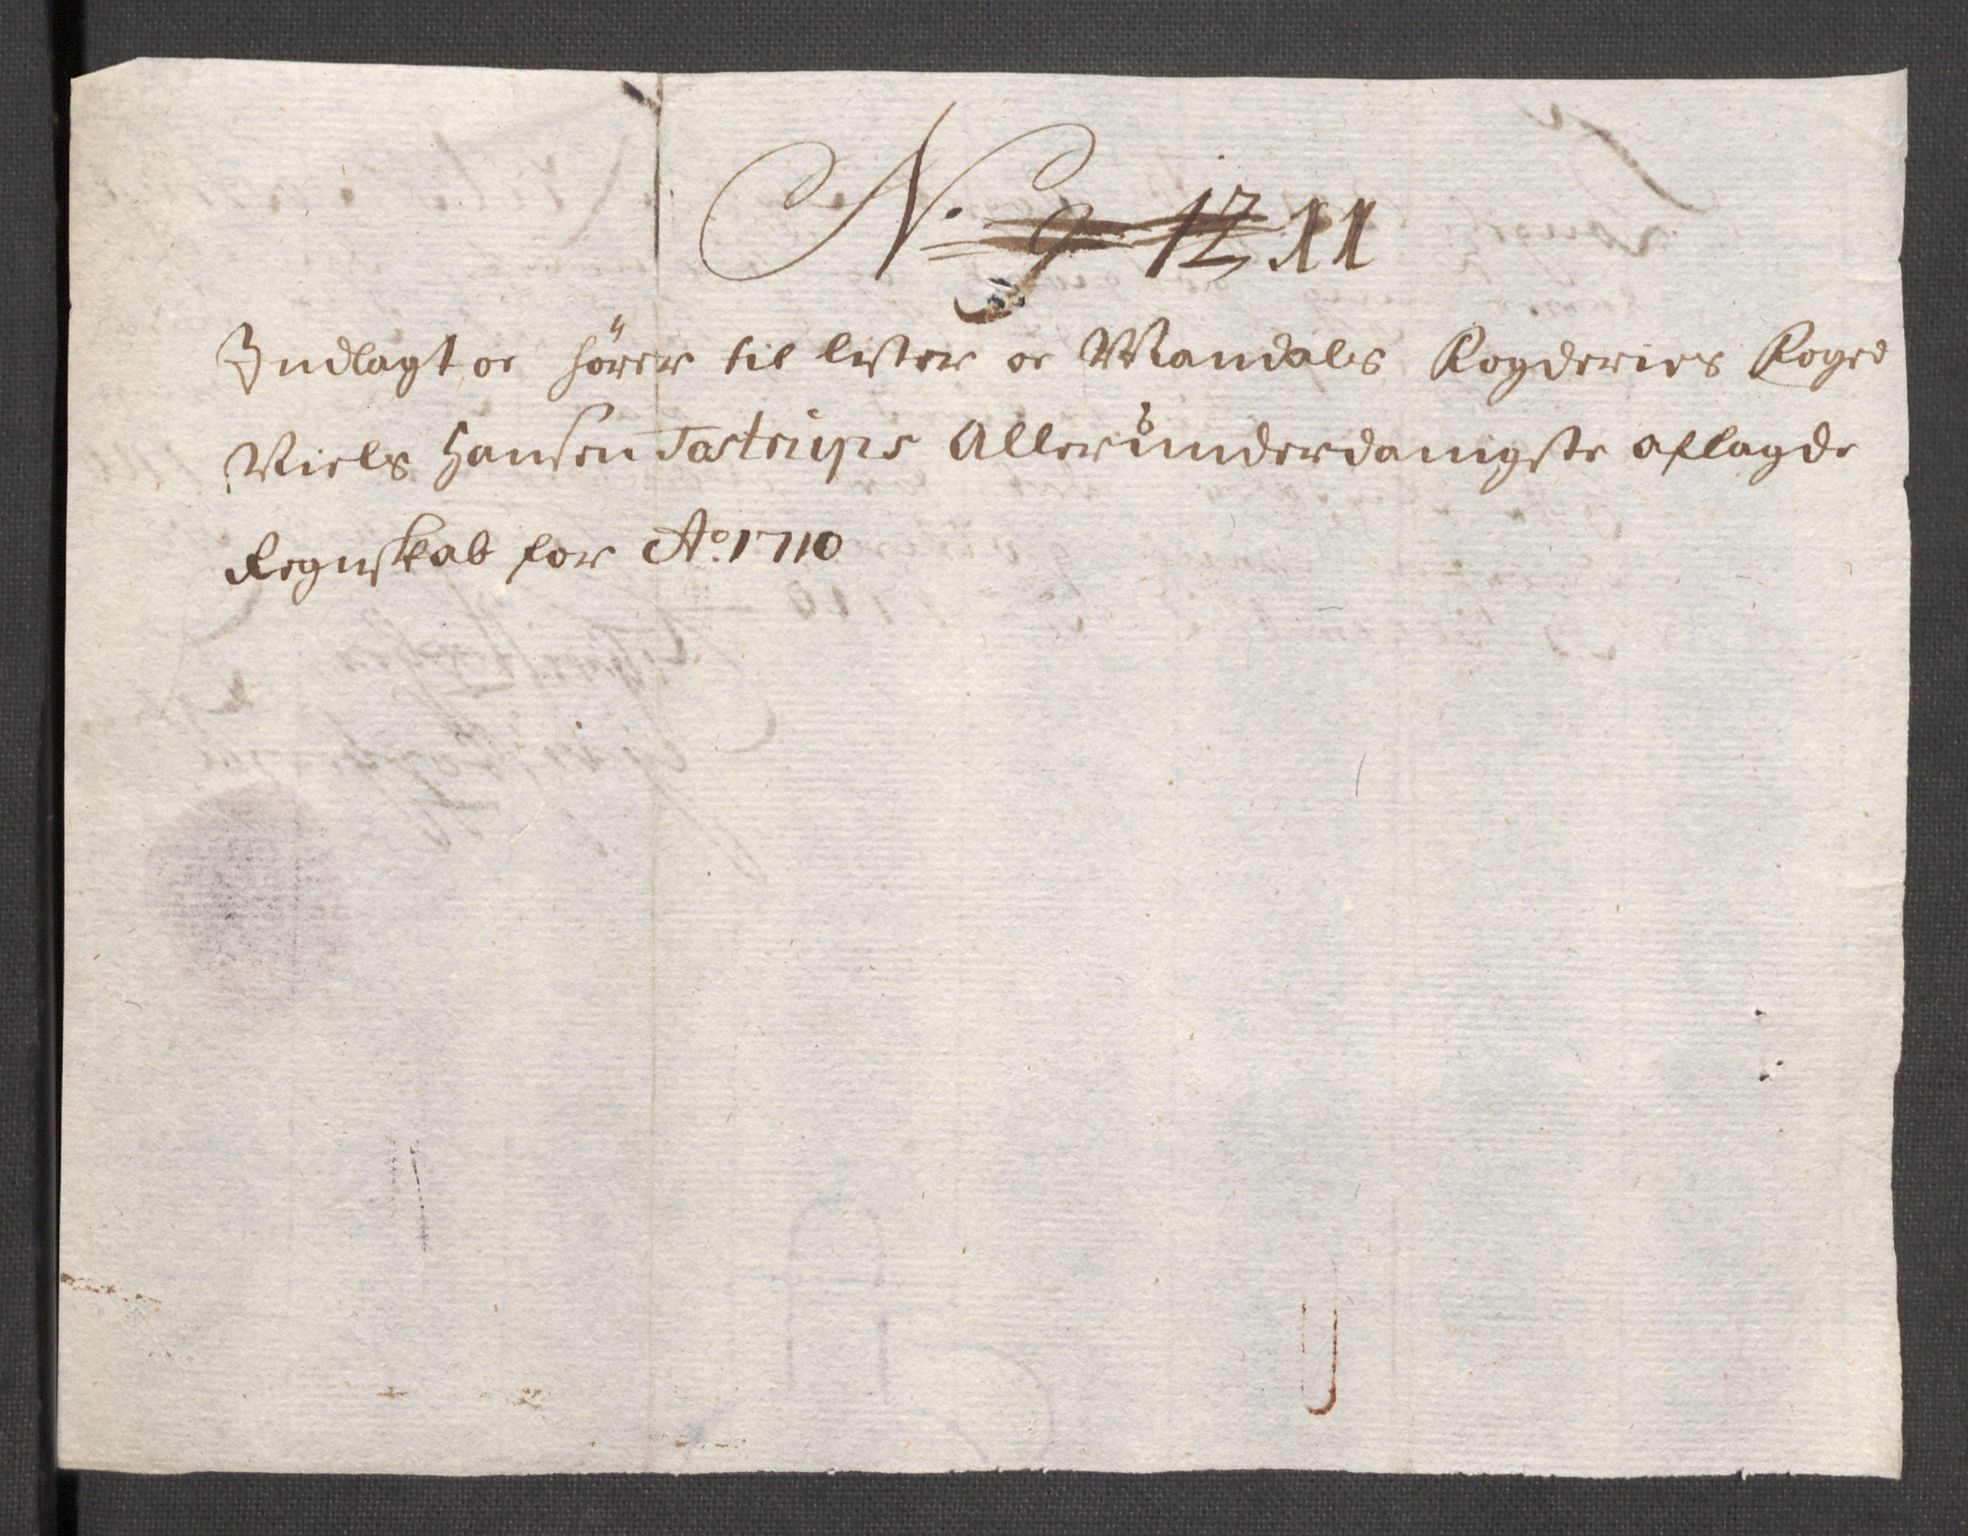 No. 9 12 11
Indlagt oc hörer til Lister oc Mandals Fogderies Foged
Niels Hansen Tastrups Allerunderdanigste aflagde
Regnskab for Ao. 1710